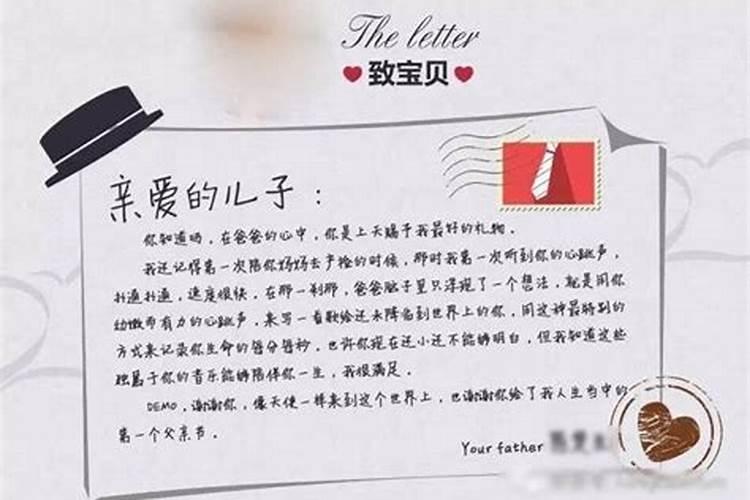 The letter
致宝贝
亲爱的儿子：
你知道吗，在爸爸的心中，你是上天赐予我最好的礼物。
我还记得第一次陪你妈妈去产检的时候，那时我第一次听到你的心跳声，
扑通扑通，速度很快，在那一刹那，爸爸脑子里只浮现了一个想法，就是用你
幼嫩而有力的心跳声，来写一首歌给还未降临到世界上的你，用这种最特别的
方式来记录你生命的每分每秒，也许你现在还小还不能够明白，但我知道这些
独属于你的音乐能够陪伴你一生，我很满足。
DEMO，谢谢你，像天使一样来到这个世界上，也谢谢你给了我人生当中的
第一个父亲节。
Your father